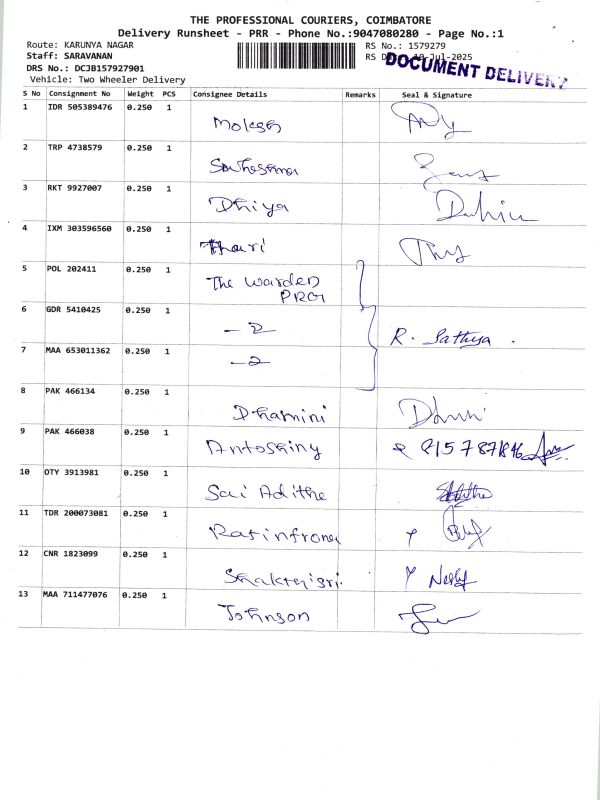 THE PROFESSIONAL COURIERS, COIMBATORE
Delivery Runsheet - PRR - Phone No.:9047080280 - Page No.:1
Route: KARUNYA NAGAR
RS No.: 1579279
Staff: SARAVANAN
RS -Jul-2025
DOCUMENT DELIVERY
DRS No.: DCJB157927901
Vehicle: Two Wheeler Delivery
S No Consignment No Weight PCS Consignee Details Remarks Seal & Signature
1 IDR 505389476 0.250 1
2 TRP 4738579 0.250 1
3 RKT 9927007 0.250 1 Dhiya
4 IXM 303596560 0.250 1 Hari
5 POL 202411 0.250 1 The Warden
PRG
6 GDR 5410425 0.250 1 -2- R. Sathya.
7 MAA 653011362 0.250 1 -2
8 PAK 466134 0.250 1 Dhamini
9 PAK 466038 0.250 1
10 OTY 3913981 0.250 1 Sai Adithe
11 TDR 200073081 0.250 1
12 CNR 1823099 0.250 1 Shakthisri.
13 MAA 711477076 0.250 1 Johnson